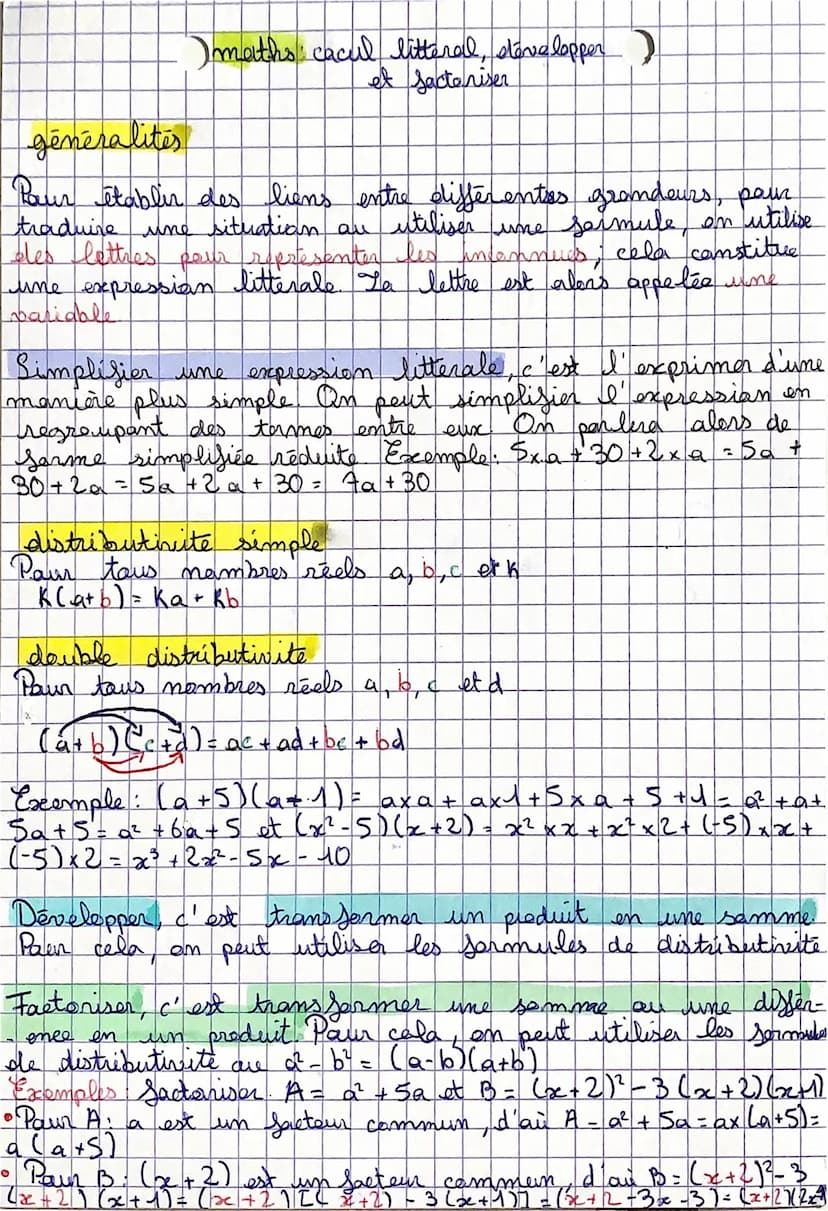 maths: cacul littéral, développer
et factoriser
généralités
Pour établir des liens entre différentes grandeurs, pour
traduire une situation ou utiliser une formule, on utilise
des lettres pour représenter les inconnues; cela constitue
une expression littérale. La lettre est alors appelée une
variable
Simplifier une expression littérale, c'est l'exprimer d'une
manière plus simple. On peut simplifier l'expression en
regroupant des termes entre eux. On parlera alors de
forme simplifiée réduite. Exemple: 5xa + 30 + 2 x a = 5a +
30 + 2a = 5a + 2a + 30 = 7a + 30
distributivite simple
Pour tous nombres réels a, b, c et k
K(a+b) = Ka + Kb
double distributivite
Pour tous nombres réels a, b, c et d
(a+b)(c+d) = ac + ad + bc + bd
Exemple: (a+5)(a+1) = axa + ax1 + 5 x a + 5 + 1 = a² + a +
5a + 5 = a² + 6a + 5 et (x²-5)(x+2) = x² x x + x² x 2 + (-5) x x +
(-5) x 2 = x³ + 2x² - 5x - 10
Développer, c'est transformer un produit en une somme.
Pour cela, on peut utiliser les formules de distributivité
Factoriser, c'est transformer une somme ou une différ-
-ence en un produit. Pour cela, on peut utiliser les formules
de distributivité ou a² - b² = (a-b)(a+b)
Exemples: factoriser. A = a² + 5a et B = (x+2)² - 3(x+2)(x+1)
• Pour A: a est un facteur commun, d'où A = a² + 5a = ax(a+5) =
a(a+5)
• Pour B: (x+2) est un facteur commun, d'où B = (x+2)² - 3
(x+2)(x+1) = (x+2)[(x+2) - 3(x+1)] = (x+2 - 3x - 3) = (x+2)